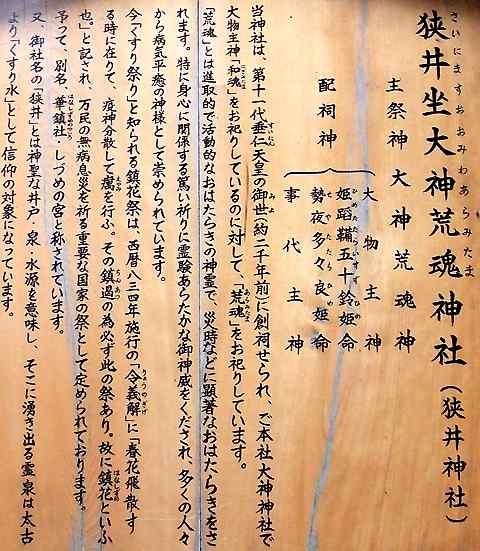 狭井坐大神荒魂神社(狭井神社)
さいにますおおみわあらみたま
主祭神 大神荒魂神
配祠神
大物主神
姫蹈鞴五十鈴姫命
ひめたたらいすずひめ
勢夜多々良姫命
せやたたらひめ
事代主神
当神社は、第十一代垂仁天皇の御世(約二千年前)に創祠せられ、ご本社大神神社で
すいにん みよ
大物主神「和魂」をお祀りしているのに対して、「荒魂」をお祀りしています。
にぎみたま あらみたま
「荒魂」とは進取的で活動的なおはたらきの神霊で、災時などに顕著なおはたらきをさ
れます。特に身心に関係する篤い祈りに霊験あらたかな御神威をくだされ、多くの人々
から病気平癒の神様として崇められています。
今「くすり祭り」と知られる鎮花祭は、西暦八三四年施行の「令義解」に「春花飛散す
りょうのぎげ
る時に在りて、疫神分散して癘を行ふ。その鎮遏の為必ず此の祭あり。故に鎮花といふ
えやみ ちんあつ はなしずめ
也。」と記され、万民の無病息災を祈る重要な国家の祭として定められております。
予って、別名、華鎮社・しづめの宮と称されています。
はなしずめしゃ
又、御社名の「狭井」とは神聖な井戸・泉・水源を意味し、そこに湧き出る霊泉は太古
より「くすり水」として信仰の対象になっています。